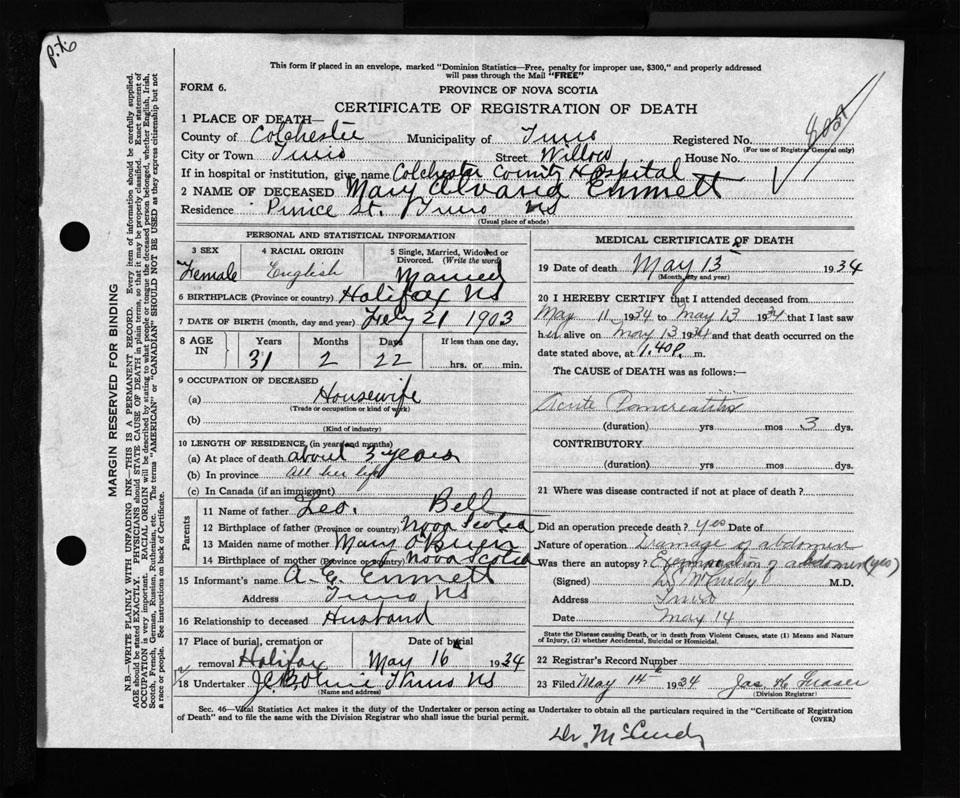 p.76
This form if placed in an envelope, marked "Dominion Statistics—Free, penalty for improper use, $300," and properly addressed
will pass through the Mail "FREE"
FORM 6.
PROVINCE OF NOVA SCOTIA
CERTIFICATE OF REGISTRATION OF DEATH
MARGIN RESERVED FOR BINDING
N.B.—WRITE PLAINLY WITH UNFADING INK—THIS IS A PERMANENT RECORD. Every item of information should be carefully supplied.
AGE should be stated EXACTLY. PHYSICIANS should STATE CAUSE OF DEATH in plain terms, so that it may be properly classified. Exact statement of
OCCUPATION is very important. RACIAL ORIGIN will be described by stating to what people or tongue the deceased person belonged, whether English, Irish,
Scotch, French, German, Russian, Ruthenian, etc. The terms "AMERICAN" or "CANADIAN" SHOULD NOT BE USED as they express citizenship but not
a race or people. See instructions on back of Certificate.
1 PLACE OF DEATH—
County of Colchester Municipality of Truro Registered No.
(For use of Registrar General only)
City or Town Truro Street Willow House No.
If in hospital or institution, give name Colchester County Hospital
2 NAME OF DECEASED Mary Emmett
Residence Prince St. Truro NS
(Usual place of abode)
PERSONAL AND STATISTICAL INFORMATION
3 SEX
Female
4 RACIAL ORIGIN
English
5 Single, Married, Widowed or
Divorced. (Write the word)
Married
6 BIRTHPLACE (Province or country) Halifax NS
7 DATE OF BIRTH (month, day and year) Feby 21 1903
8 AGE IN
Years Months Days If less than one day,
31 2 22 hrs. or min.
9 OCCUPATION OF DECEASED
(a) Housewife
(Trade or occupation or kind of work)
(b)
(Kind of industry)
10 LENGTH OF RESIDENCE (in years and months)
(a) At place of death about 3 years
(b) In province All her life
(c) In Canada (if an immigrant)
Parents
11 Name of father Leo. Bell
12 Birthplace of father (Province or country) Nova Scotia
13 Maiden name of mother Mary O'Brien
14 Birthplace of mother (Province or country) Nova Scotia
15 Informant's name A. E. Emmett
Address Truro NS
16 Relationship to deceased Husband
17 Place of burial, cremation or Date of burial
removal Halifax May 16 1934
18 Undertaker Truro NS
(Name and address)
MEDICAL CERTIFICATE OF DEATH
19 Date of death May 13 1934
(Month, day and year)
20 I HEREBY CERTIFY that I attended deceased from
May 11 1934 to May 13 1934 that I last saw
her alive on May 13 1934 and that death occurred on the
date stated above, at 1.40 P. m.
The CAUSE of DEATH was as follows:—
Acute Pancreatitis
(duration) yrs mos 3 dys.
CONTRIBUTORY
(duration) yrs mos dys.
21 Where was disease contracted if not at place of death?
Did an operation precede death? yes Date of
Nature of operation Drainage of abdomen
Was there an autopsy? Examination of abdomen (yes)
(Signed) McCurdy M.D.
Address Truro
Date May 14
State the Disease causing Death, or in death from Violent Causes, state (1) Means and Nature
of Injury, (2) whether Accidental, Suicidal or Homicidal.
22 Registrar's Record Number
23 Filed May 14 1934 Jas. Fraser
(Division Registrar)
Sec. 46—Vital Statistics Act makes it the duty of the Undertaker or person acting as Undertaker to obtain all the particulars required in the "Certificate of Registration
of Death" and to file the same with the Division Registrar who shall issue the burial permit. (OVER)
Dr. McCurdy